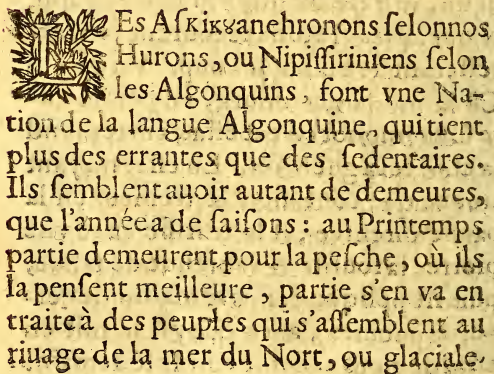 LEs Aſκικȣanehronons ſelonnos
Hurons, ou Nipiſſiriniens ſelon
les Algonquins, ſont vne Na-
tion de la langue Algonquine, qui tient
plus des errantes que des ſedentaires.
Ils ſemblent auoir autant de demeures,
que l'année a de ſaiſons: au Printemps
partie demeurent pour la peſche, où ils
la penſent meilleure, partie s'en va en
traite à des peuples qui s'aſſemblent au
riuage de la mer du Nort, ou glaciale